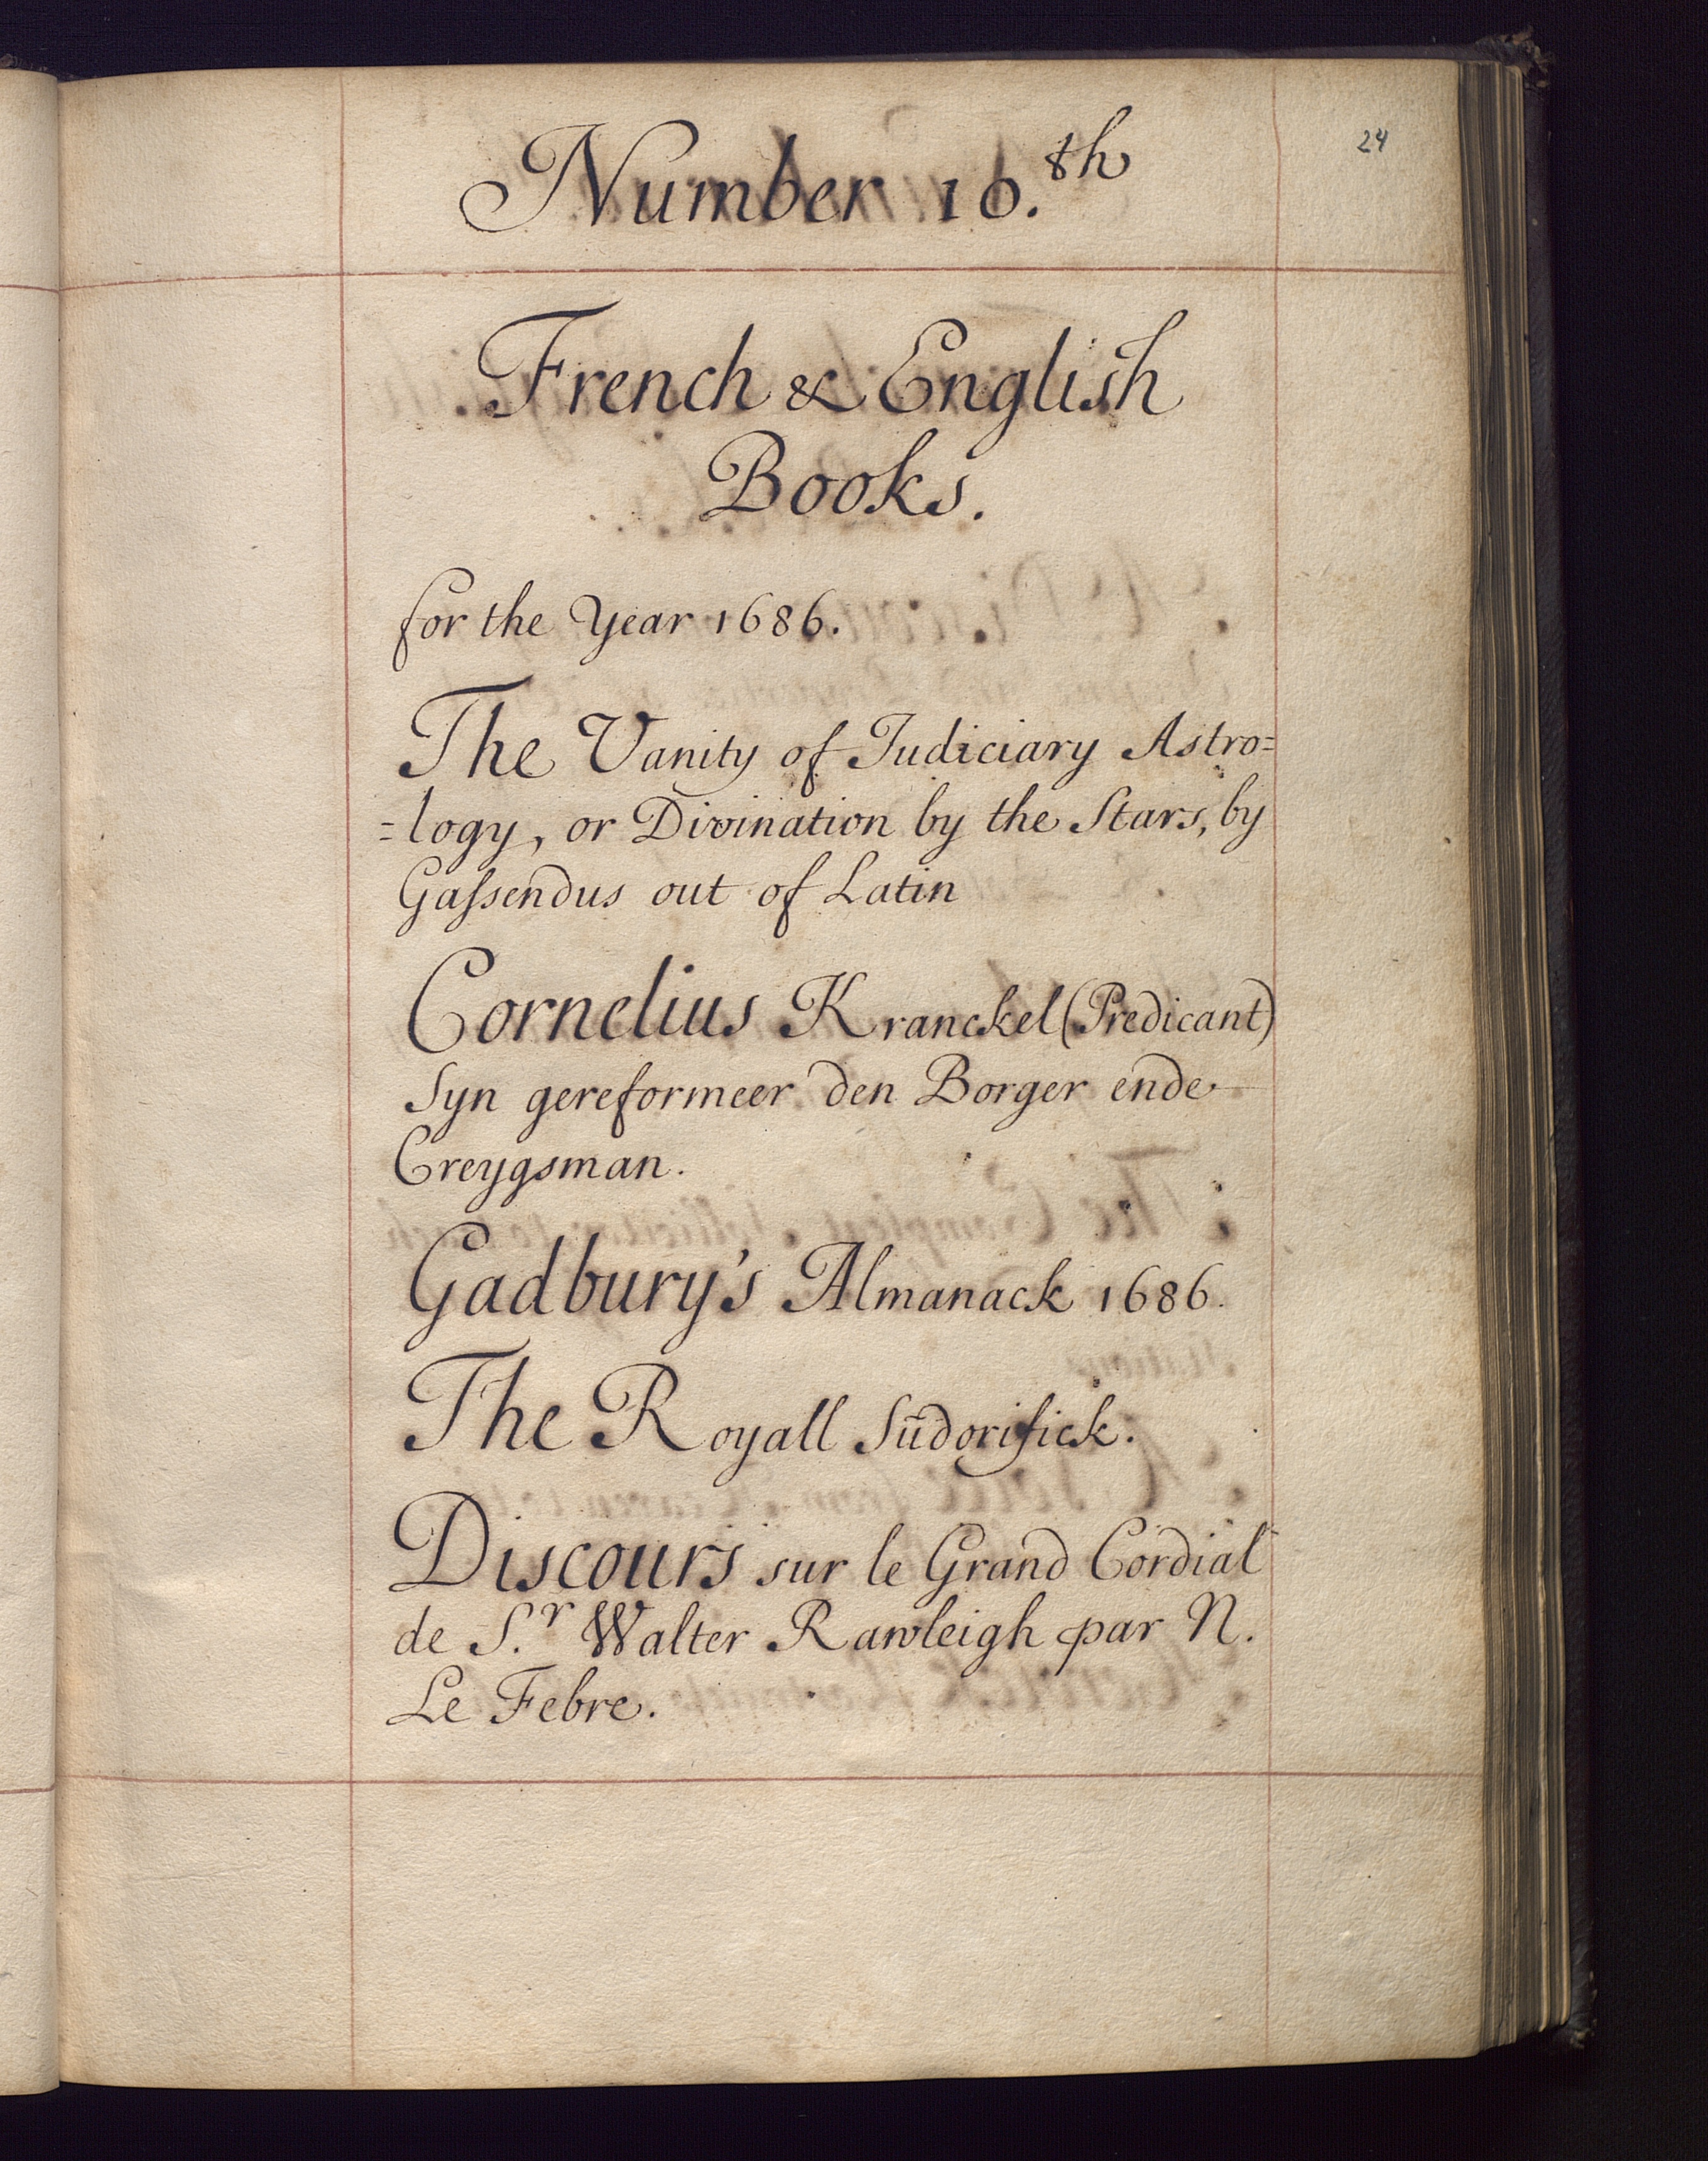 24
Number 10.th
French & English
Books.
for the Year 1686.
The Vanity of Judiciary Astro=
=logy, or Divination by the Stars, by
Gaſsendus out of Latin
Cornelius Kranckel (Predicant)
Syn gereformeer den Borger ende
Creygsman.
Gadbury's Almanack 1686.
The Royall Sudorifick.
Discours sur le Grand Cordial
de S.r Walter Rawleigh par N.
Le Febre.